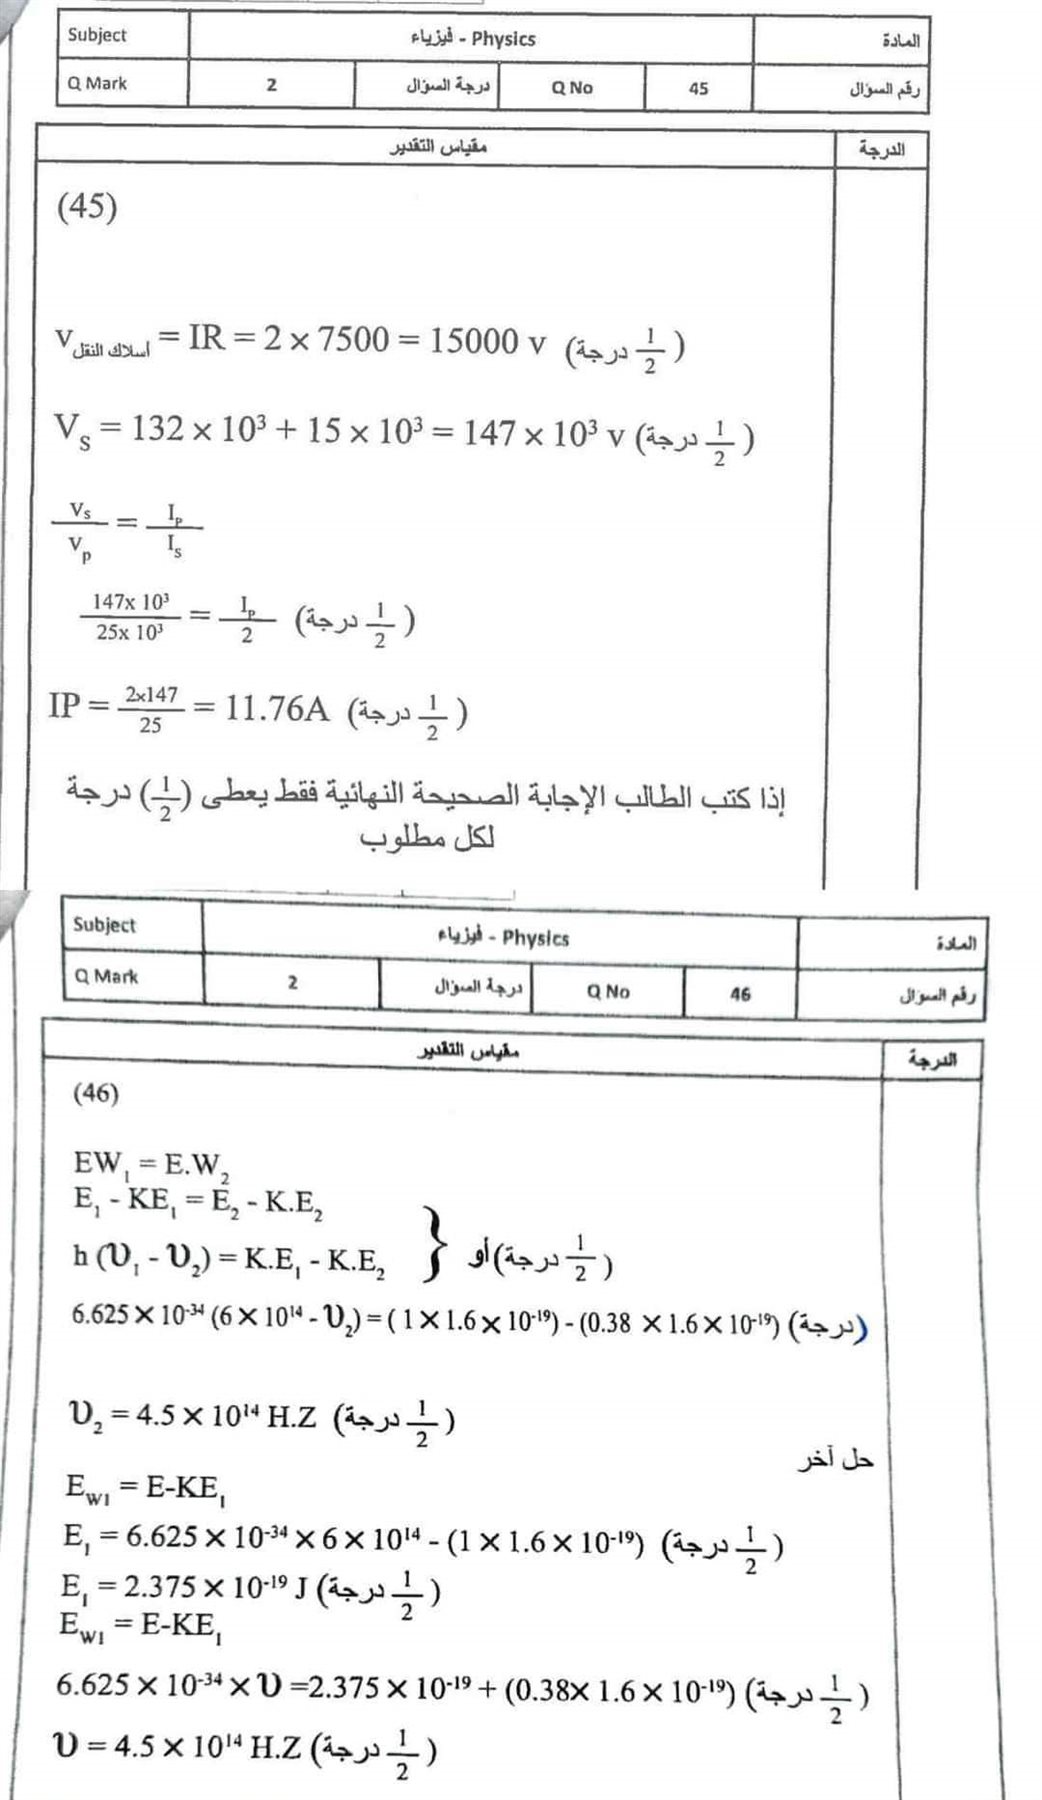 Subject فيزياء - Physics المادة
Q Mark 2 درجة السؤال Q No 45 رقم السؤال
مقياس التقدير الدرجة
(45)
V أسلاك النقل = IR = 2 × 7500 = 15000 v (½ درجة)
V_S = 132 × 10³ + 15 × 10³ = 147 × 10³ v (½ درجة)
V_s / V_p = I_p / I_s
147x 10³ / 25x 10³ = I_p / 2 (½ درجة)
IP = 2×147 / 25 = 11.76A (½ درجة)
إذا كتب الطالب الإجابة الصحيحة النهائية فقط يعطى (½) درجة
لكل مطلوب
Subject فيزياء - Physics المادة
Q Mark 2 درجة السؤال Q No 46 رقم السؤال
مقياس التقدير الدرجة
(46)
EW₁ = E.W₂
E₁ - KE₁ = E₂ - K.E₂
h (υ₁ - υ₂) = K.E₁ - K.E₂ } أو (½ درجة)
6.625 × 10⁻³⁴ (6 × 10¹⁴ - υ₂) = ( 1 × 1.6 × 10⁻¹⁹) - (0.38 × 1.6 × 10⁻¹⁹) (درجة)
υ₂ = 4.5 × 10¹⁴ H.Z (½ درجة)
حل آخر
E_W1 = E-KE₁
E₁ = 6.625 × 10⁻³⁴ × 6 × 10¹⁴ - (1 × 1.6 × 10⁻¹⁹) (½ درجة)
E₁ = 2.375 × 10⁻¹⁹ J (½ درجة)
E_W1 = E-KE₁
6.625 × 10⁻³⁴ × υ =2.375 × 10⁻¹⁹ + (0.38× 1.6 × 10⁻¹⁹) (½ درجة)
υ = 4.5 × 10¹⁴ H.Z (½ درجة)